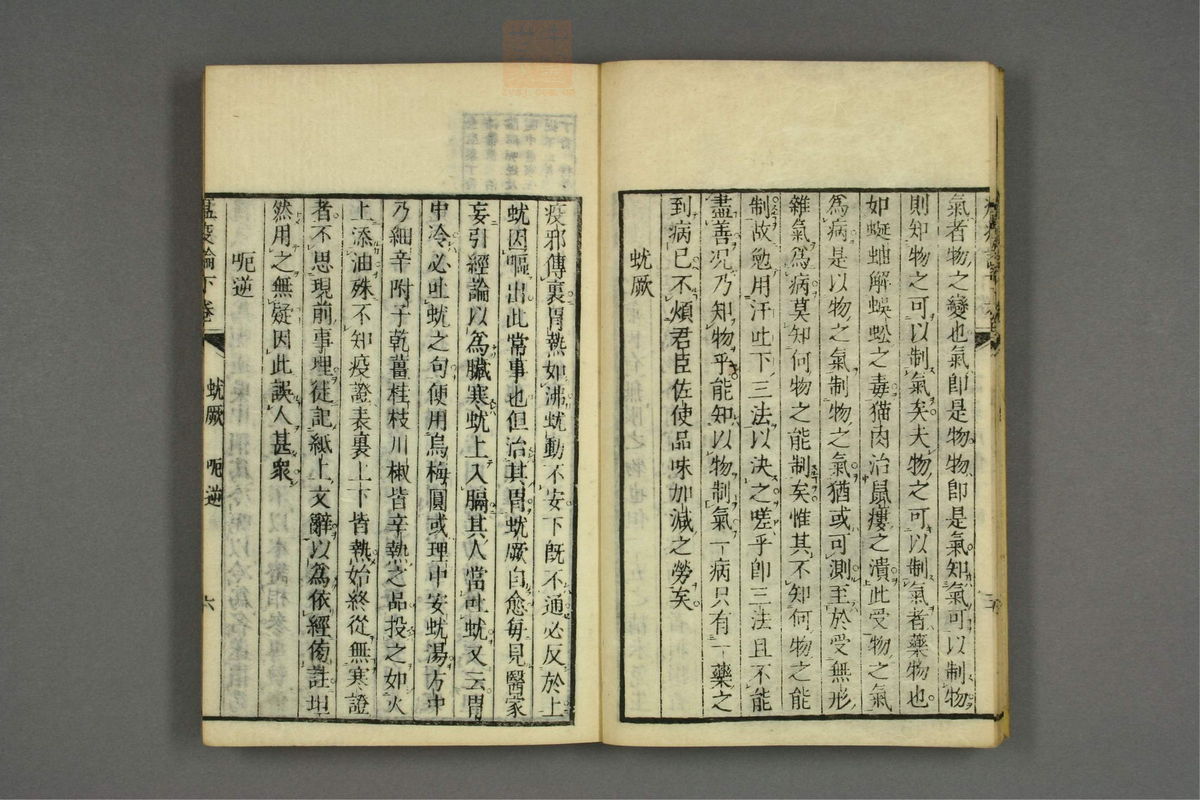 氣者物之變也氣即是物物即是氣知氣可以制物
則知物之可以制氣矣夫物之可以制氣者藥物也
如蜒蚰解蜈蚣之毒猫肉治鼠瘻之潰此受物之氣
為病是以物之氣制物之氣猶或可測至於受無形
雜氣為病莫知何物之能制矣惟其不知何物之能
制故勉用汗吐下三法以決之嗟乎即三法且不能
盡善况乃知物乎能知以物制氣一病只有一藥之
到病已不煩君臣佐使品味加減之勞矣
蚘厥
疫邪傳裏胃熱如沸蚘動不安下既不通必反於上
蚘因嘔出此常事也但治其胃蚘厥自愈每見醫家
妄引經論以為臟寒蚘上入膈其人當吐蚘又云胃
中冷必吐蚘之句便用烏梅圓或理中安蚘湯方中
乃細辛附子乾薑桂枝川椒皆辛熱之品投之如火
上添油殊不知疫證表裏上下皆熱始終從無寒證
者不思現前事理徒記紙上文辭以為依經傍註坦
然用之無疑因此誤人甚衆
呃逆
溫疫論下卷
蚘厥 呃逆
六